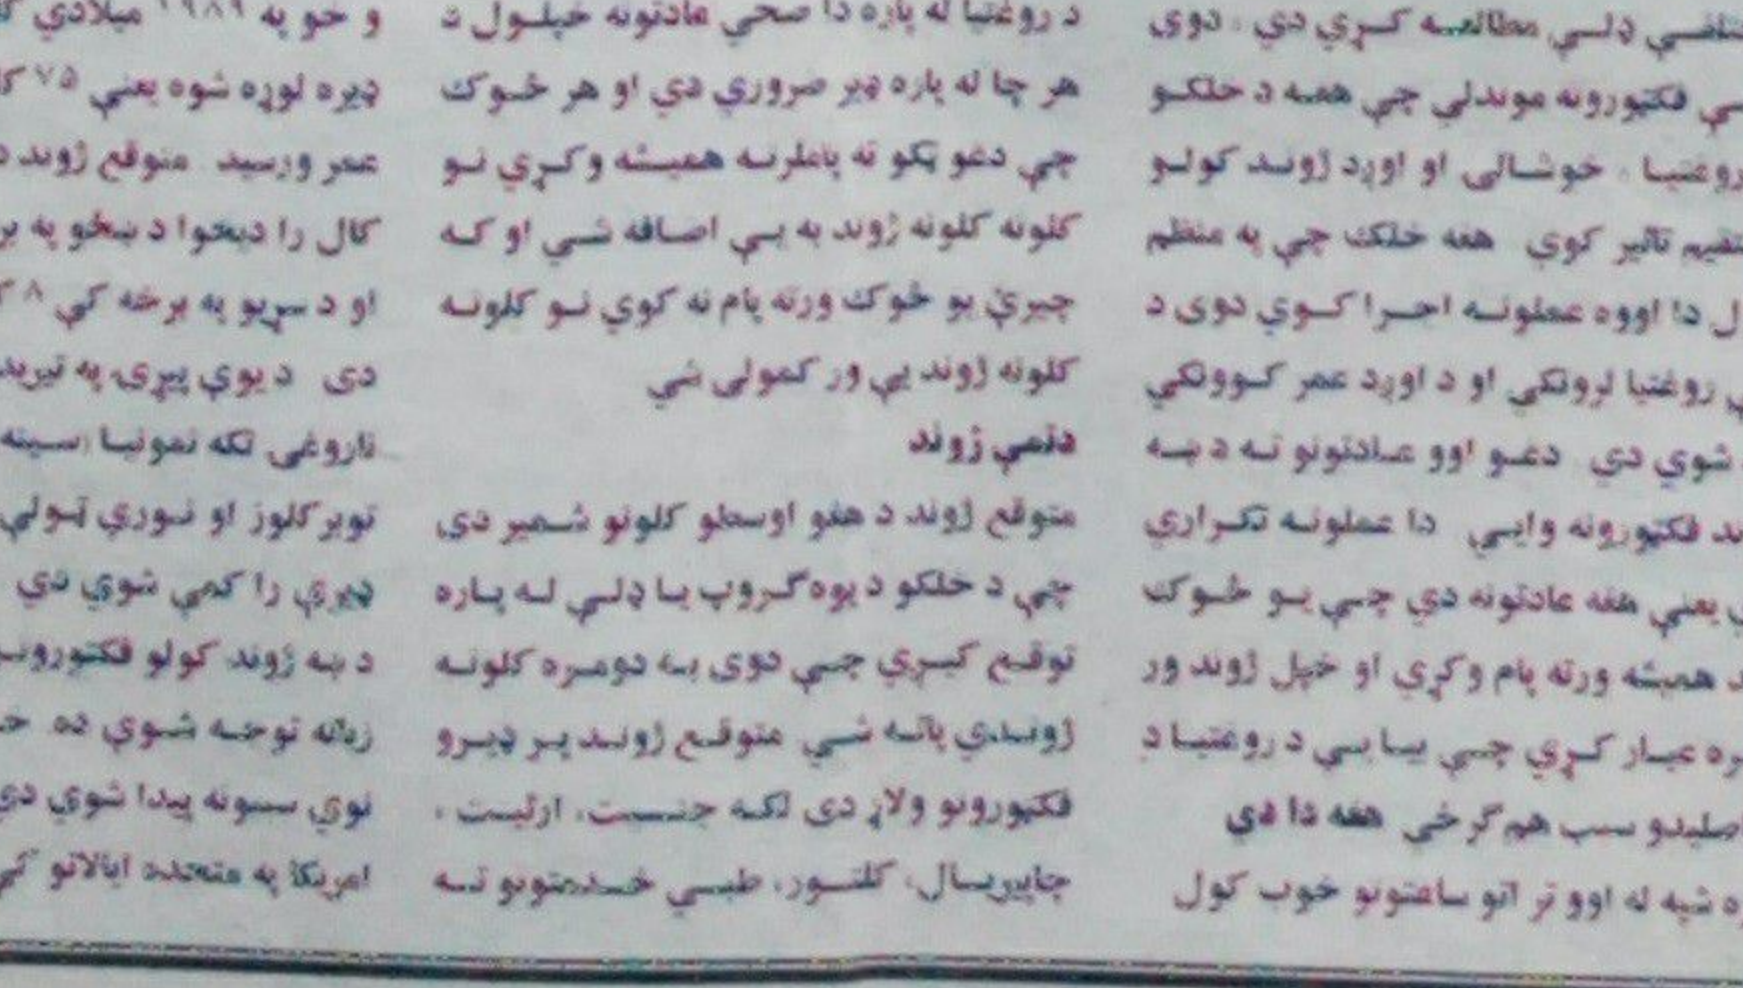 ډلسي مطالعسه کسړي دي . دوی
فکتورونه موندلي چې همه د خلکسو
روغتیسا . خوشسالی او اوږد ژونسد کولسو
تاثیر کوي هغه خلک چې په منظم
ل دا اووه عملونسه اجسرا کسوي دوی د
روغتیا لرونکي او د اوږد عمر کسوونکي
شوي دي دغسو اوو عسادتونو تسه د ښسه
ند فکتورونه وایسي دا عملونسه تکسراري
يعنې هغه عادتونه دي چسې يسو څسوک
همیشه ورته پام وکړي او خپل ژوند ور
ره عیسار کسړي چسې یسا یسې د روغتیسا د
سبب هم ګرځي هغه دا دي
ه شپه له اوو تر اتو ساعتونو خوب کول
د روغتیا له پاره دا صحي عادتونه خپلسول د
هر چا له پاره ډیر ضروري دي او هر څسوک
چې دغو ټکو ته پاملرنسه همیشه وکسړي نسو
کلونه کلونه ژوند به یسې اضسافه شسي او کسه
چیرې یو څوک ورته پام نه کوي نسو کلونسه
کلونه ژوند یې ور کمولی شي
ژوند
متوقع ژوند د هغو اوسطو کلونو شسمیر دی
چې د خلکو د یوه ګسروپ یسا ډلسې لسه پساره
توقسع کیسږي چسې دوی بسه دومسره کلونسه
ژونسدي پاتسه شسي متوقسع ژونسد پسر ډیسرو
فکتورونو ولاړ دی لکسه جنسسیت، ارثیست ،
چاپیریسال، کلتسور، طبسي خسدمتونو تسه
و خو په ۱۹۸۹ میلادي
ډیره لوړه شوه یعنې ۷۵
عمر ورسید متوقع ژوند
کال را دیخوا د ښځو په
او د سړیو په برخه کې ۸
دی د یوې پیړۍ په
ناروغۍ لکه نمونیسا
توبرکلوز او نسورې ټسولې
ډیرې را کمې شوي دي
د ښه ژوند کولو
زیاته توجسه شسوې ده
نوي سببونه پیدا شوي دي
امریکا په متحده ایالاتو